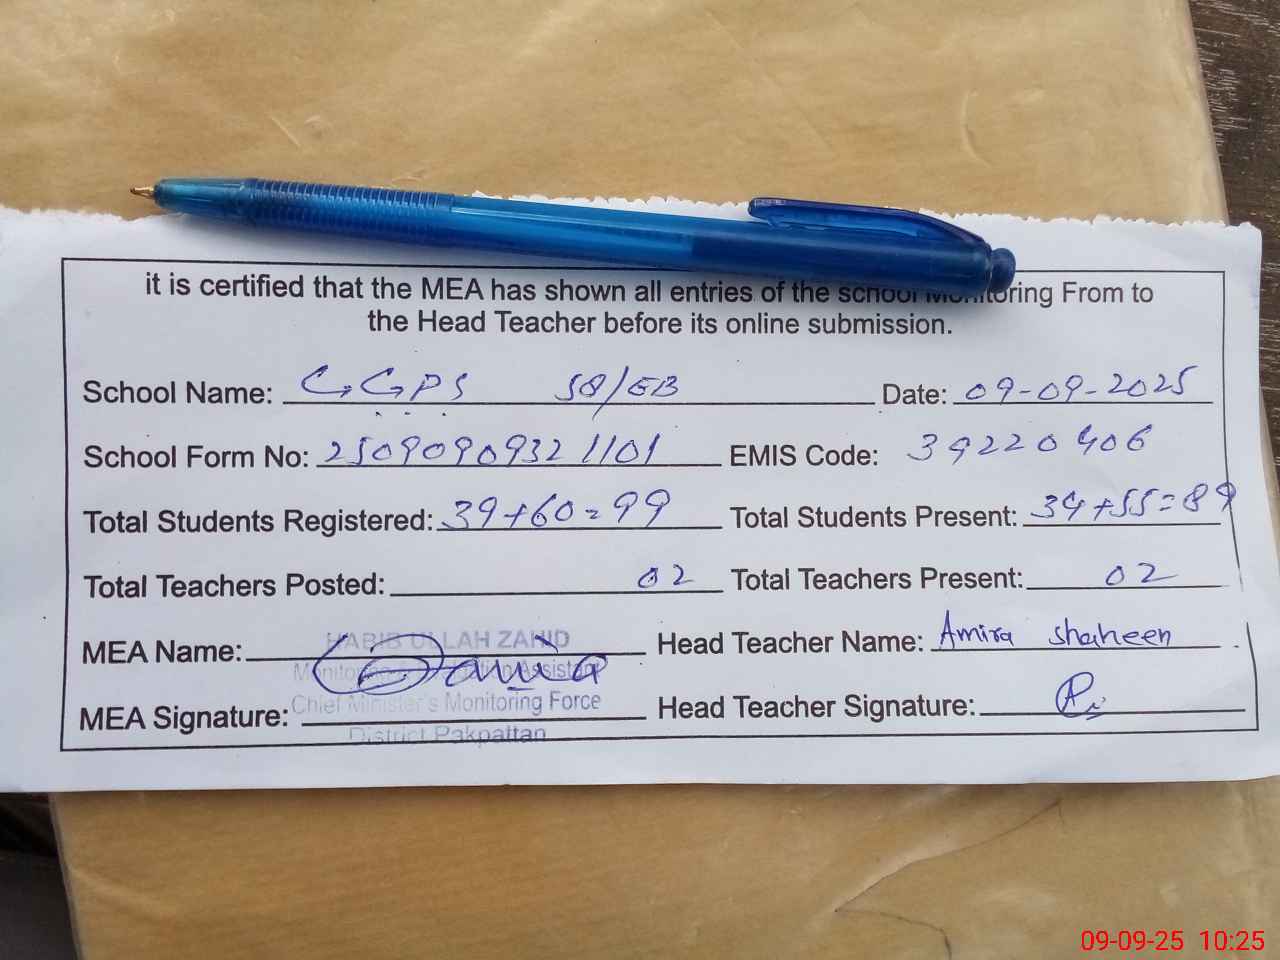 it is certified that the MEA has shown all entries of the school Monitoring From to
the Head Teacher before its online submission.
School Name: GGPS 58/EB Date: 09-09-2025
School Form No: 25090909321101 EMIS Code: 39220406
Total Students Registered: 39+60=99 Total Students Present: 34+55=89
Total Teachers Posted: 02 Total Teachers Present: 02
MEA Name: HABIB ULLAH ZAHID Head Teacher Name: Amira Shaheen
Monitoring & Evaluation Assistant
MEA Signature: Chief Minister's Monitoring Force Head Teacher Signature:
District Pakpattan
09-09-25 10:25